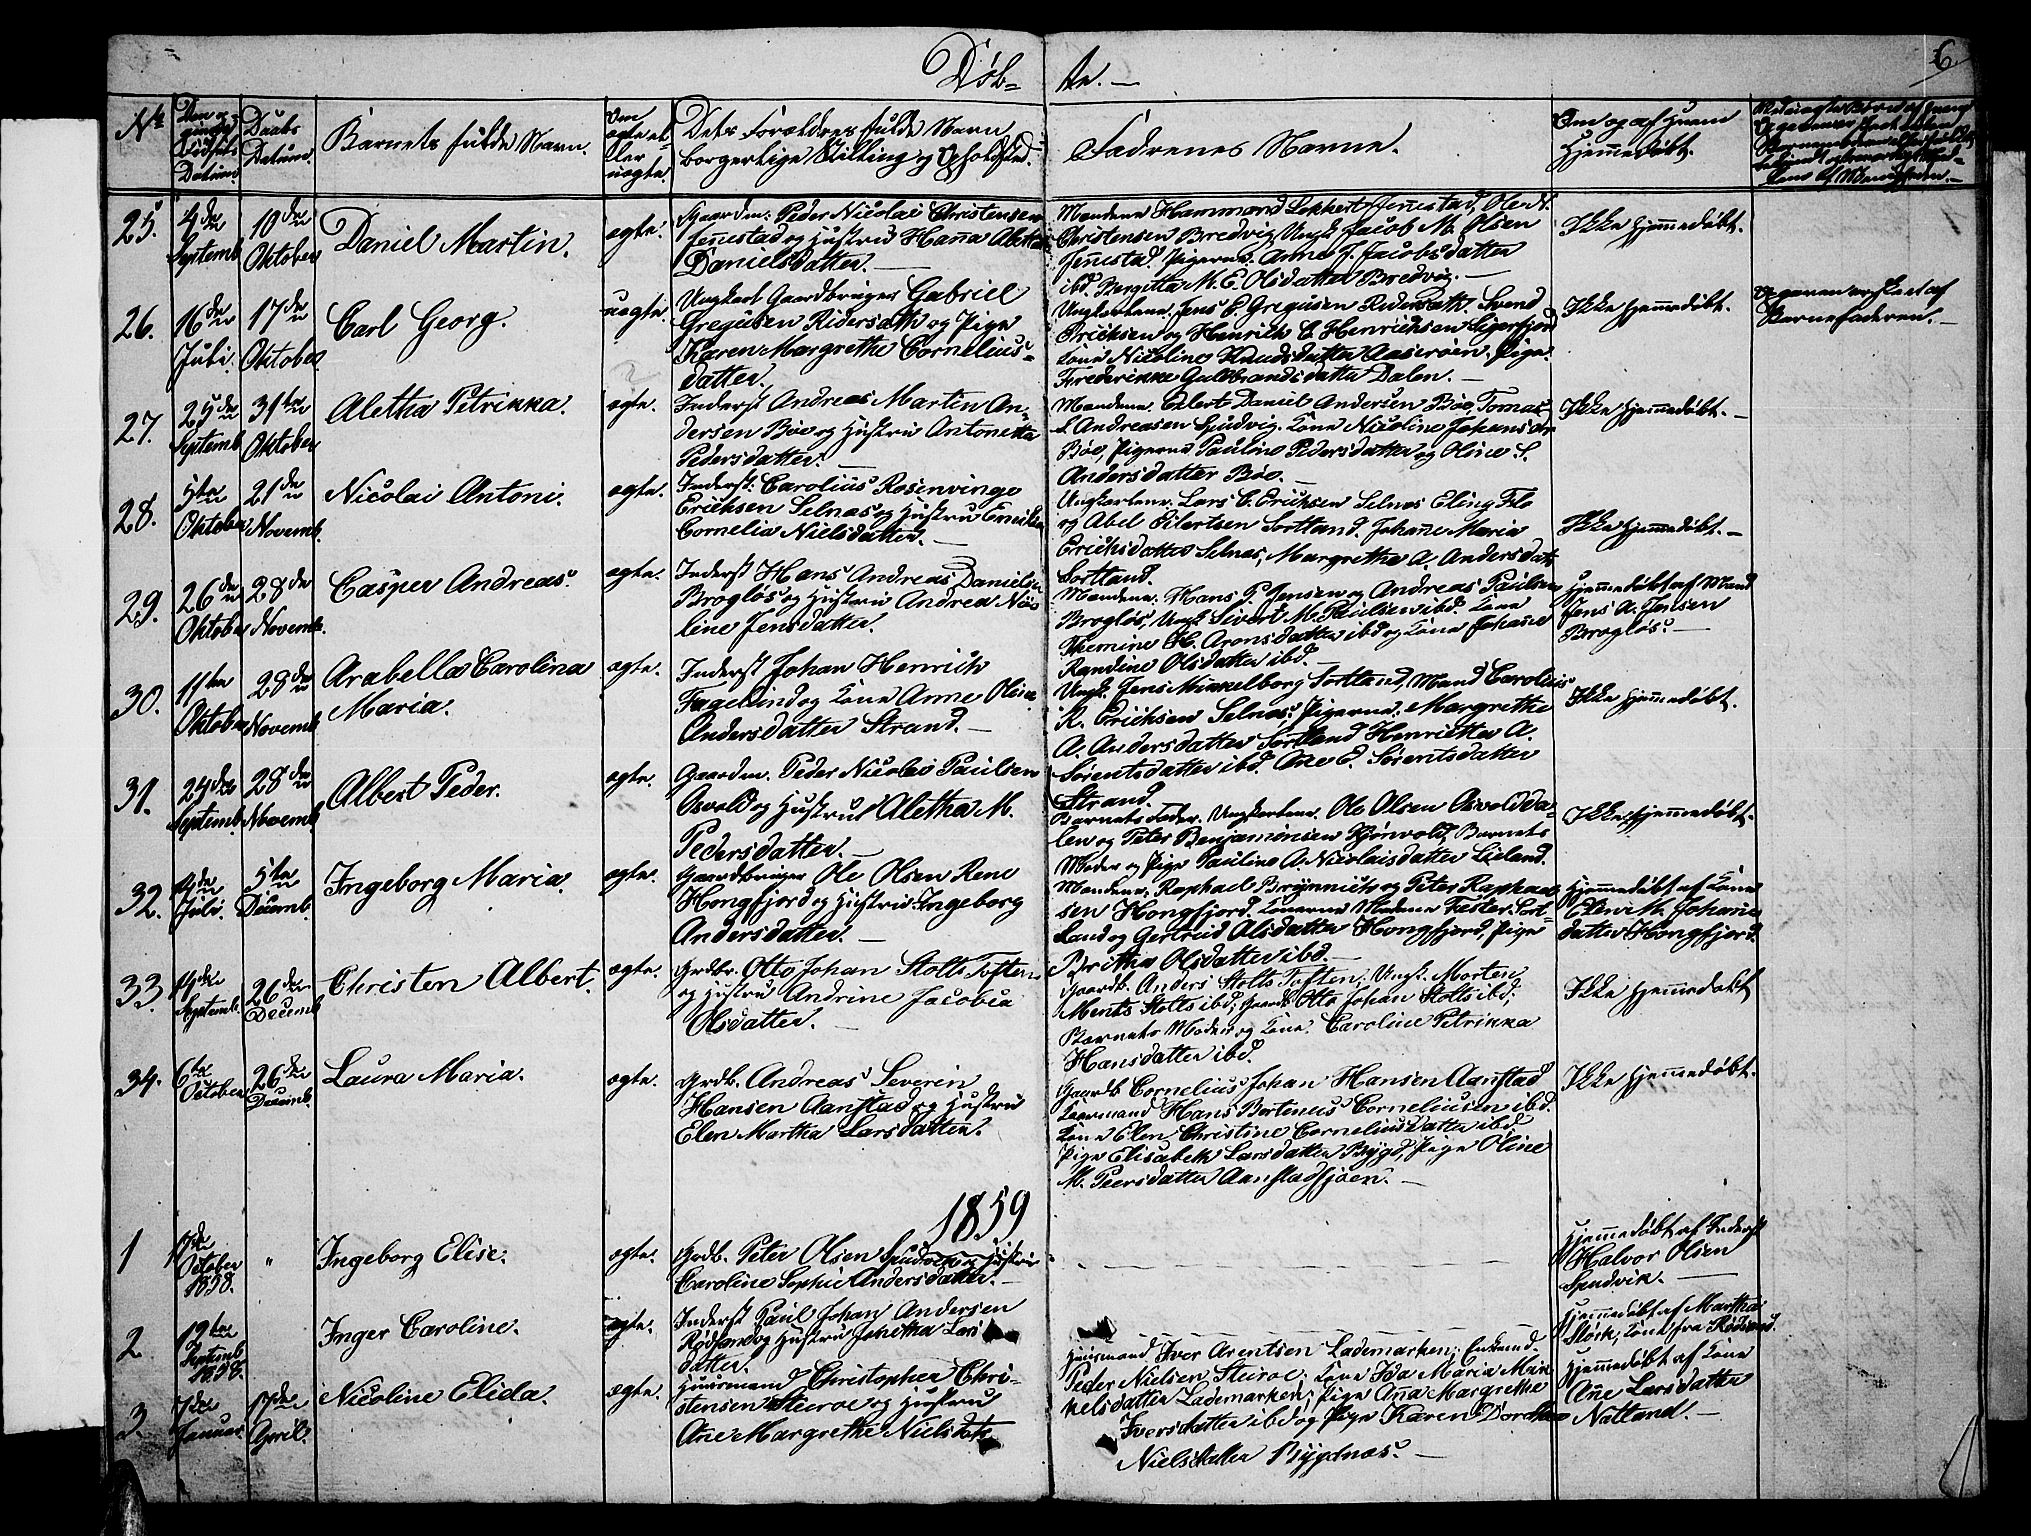 Døb-
te.
6.
No
Den op-
givne
Fødsels
Datum.
Daabs
Datum.
Barnets fulde Navn.
Om
ægte el-
ler
uægte.
Dets Forældres fulde Navn
borgerlige Stilling og Opholdsted.
Fadrenes Navne.
Om og af Hvem
Hjemmedøbt.
25.
4de
Septemb.
10de
Oktober
Daniel Martin.
ægte.
Gaardm: Peder Nicolai Christensen
Jennestad og Hustru Hanna Aletta
Danielsdatter.
Mændene Hammond Lekkert Jennestad, Ole N.
Christensen Bredvig, Ungk. Jacob M. Olsen
Jennestad. Pigerne: Anne J. Jacobsdatter
ibd. Bergitta M. E. Olsdatter Bredvig.
Ikke Hjemmedøbt.
26.
16de
Juli.
17de
Oktober
Carl Georg.
uægte.
Ungkarl Gaardbruger Gabriel
Gregusen Ridersæth og Pige
Karen Margrethe Cornelius-
datter.
Ungkarlene. Jens E. Gregusen Ridersæth. Svend
Erichsen og Henrich C. Henrichsen Sigerfjord
Kone Nicoline Knudsdatter Aaserøen. Pige.
Frederikke Guldbrandsdatter Dalen.
Ikke Hjemmedøbt.
Opgaven erkjendt af
Barnefaderen.
27.
25de
Septemb.
31te
Oktober
Aletha Petrikka.
ægte.
Inderst Andreas Martin An-
dersen Bøe og Hustru Antonetta
Pedersdatter.
Mændene. Eilert Daniel Andersen Bøe, Tomas
L. Andreasen Spudvig. Kone Nicoline Johansdtr
Bøe, Pigerne Pauline Pedersdatter og Oline S.
Andersdatter Bøe.
Ikke Hjemmedøbt.
28.
5te
Oktober
21de
Novemb.
Nicolai Antoni.
ægte.
Inderst: Carolius Rosenvinge
Erichsen Selnæs og Hustru Emilie
Cornelia Nielsdatter.
Ungkarlene. Lars C. Erichsen Selnes Eling Flo
og Abel Eilertsen Sortland. Johanne Maria
Erichsdatter Selnæs, Margrethe A. Andersdatt.
Sortland.
Ikke Hjemmedøbt.
29.
26de
Oktober
28de
Novemb.
Casper Andreas.
ægte.
Inderst Hans Andreas Danielsen
Brogløs og Hustru Andrea Nico
line Jensdatter.
Mændene. Hans P. Jensen og Andreas Paulsen
Brogløs, Ungk. Sivert M. Paulsen ibd. Kone
Hemine H. Aronsdatter ibd og Kone Johanne
Randine Olsdatter ibd.
Hjemmedøbt af Mand
Jens A. Jensen
Brogløs.
30.
11te
Oktober
28de
Novemb.
Arabella Carolina
Maria.
ægte.
Inderst Johan Henrich
Fagelund og Kone Anne Oline
Andersdatter Strand.
Ungk. Jens Minkelborg Sortland, Mand Carolius
R. Erichsen Selnæs; Pigerne: Margrethe
A. Andersdatter Sortland Henrietta A.
Sørentsdatter ibd. Ane E. Sørentsdatter
Strand.
Ikke Hjemmedøbt.
31.
24de
Septemb.
28de
Novemb.
Albert Peder.
ægte.
Gaardm. Peder Nicolai Paulsen
Osvold og Hustru Aletha M.
Pedersdatter.
Barnets Fader. Ungkarlene. Ole Olsen Osvoldda-
len og Peter Benjaminsen Kjørvold, Barnets
Moder og Pige Pauline A. Nicolaisdatter Lieland.
Ikke Hjemmedøbt.
32.
14de
Juli.
5te
Decemb.
Ingeborg Maria.
ægte.
Gaardbruger Ole Olsen Rene
Hongfjord og Hustru Ingeborg
Andersdatter.
Mændene. Raphael Brynnich og Peter Raphael-
sen Hongfjord. Konerne Madame Fester Sort-
land og Gertrud Olsdatter Hongfjord, Pige
Britha Olsdatter ibd.
Hjemmedøbt af Kone
Elen M. Johanne
datter Hongfjord.
33.
14de
Septemb.
26de
Decemb.
Christen Albert.
ægte.
Grdbr. Otto Johan Stolts Toften
og Hustru Andrine Jacobia
Olsdatter.
Gaardb. Anders Stolts Toften; Ungk. Morten
Ments Stolts ibd; Gaardb Otto Johan Stolts ibd;
Barnets Moder og Kone. Caroline Petrikka
Hansdatter ibd.
Ikke Hjemmedøbt
34.
6te
October
26de
Decemb.
Laura Maria.
ægte.
Grdb. Andreas Severin
Hansen Aanstad og Hustru
Elen Martha Larsdatter.
Gaardb Cornelius Johan Hansen Aanstad
Kaarmand Hans Bertenus Corneliusen ibd.
Kone Elen Christine Corneliusdatter ibd
Pige Elisabeth Larsdatter Bygd, Pige Oline
M. Peersdatter Aanstadsjøen.
Ikke Hjemmedøbt.
1859
1
17de
October
1858.
"
Ingeborg Elise.
ægte.
Grdb. Peter Olsen Spudvig og Hustru
Caroline Sophie Andersdatter.
Hjemmedøbt af Inderst
Halvor Olsen
Spudvik.
2
19te
Septemb
1858.
Inger Caroline.
ægte.
Inderst Paul Johan Andersen
Rødsand og Hustru Johetha Lars
datter.
Hjemmedøbt af Martha
Sløck; Kone fra Rødsand.
3.
7de
Januar.
17de
April.
Nicoline Elida.
ægte.
Huusmand Christopher Chri-
stensen Steiroe og Hustru
Ane Margrethe Nielsdatt.
Huusmand Iver Arentsen Lademarken; Enkemd.
Peder Nielsen Steiroe; Kone Ida Maria Min-
kelsdatter Lademarken; Pige Anna Margrethe
Iversdatter ibd og Pige Karen Dorthea
Nielsdatter Bygdnæs.
Hjemmedøbt af Kone
Ane Larsdatter
Natland.